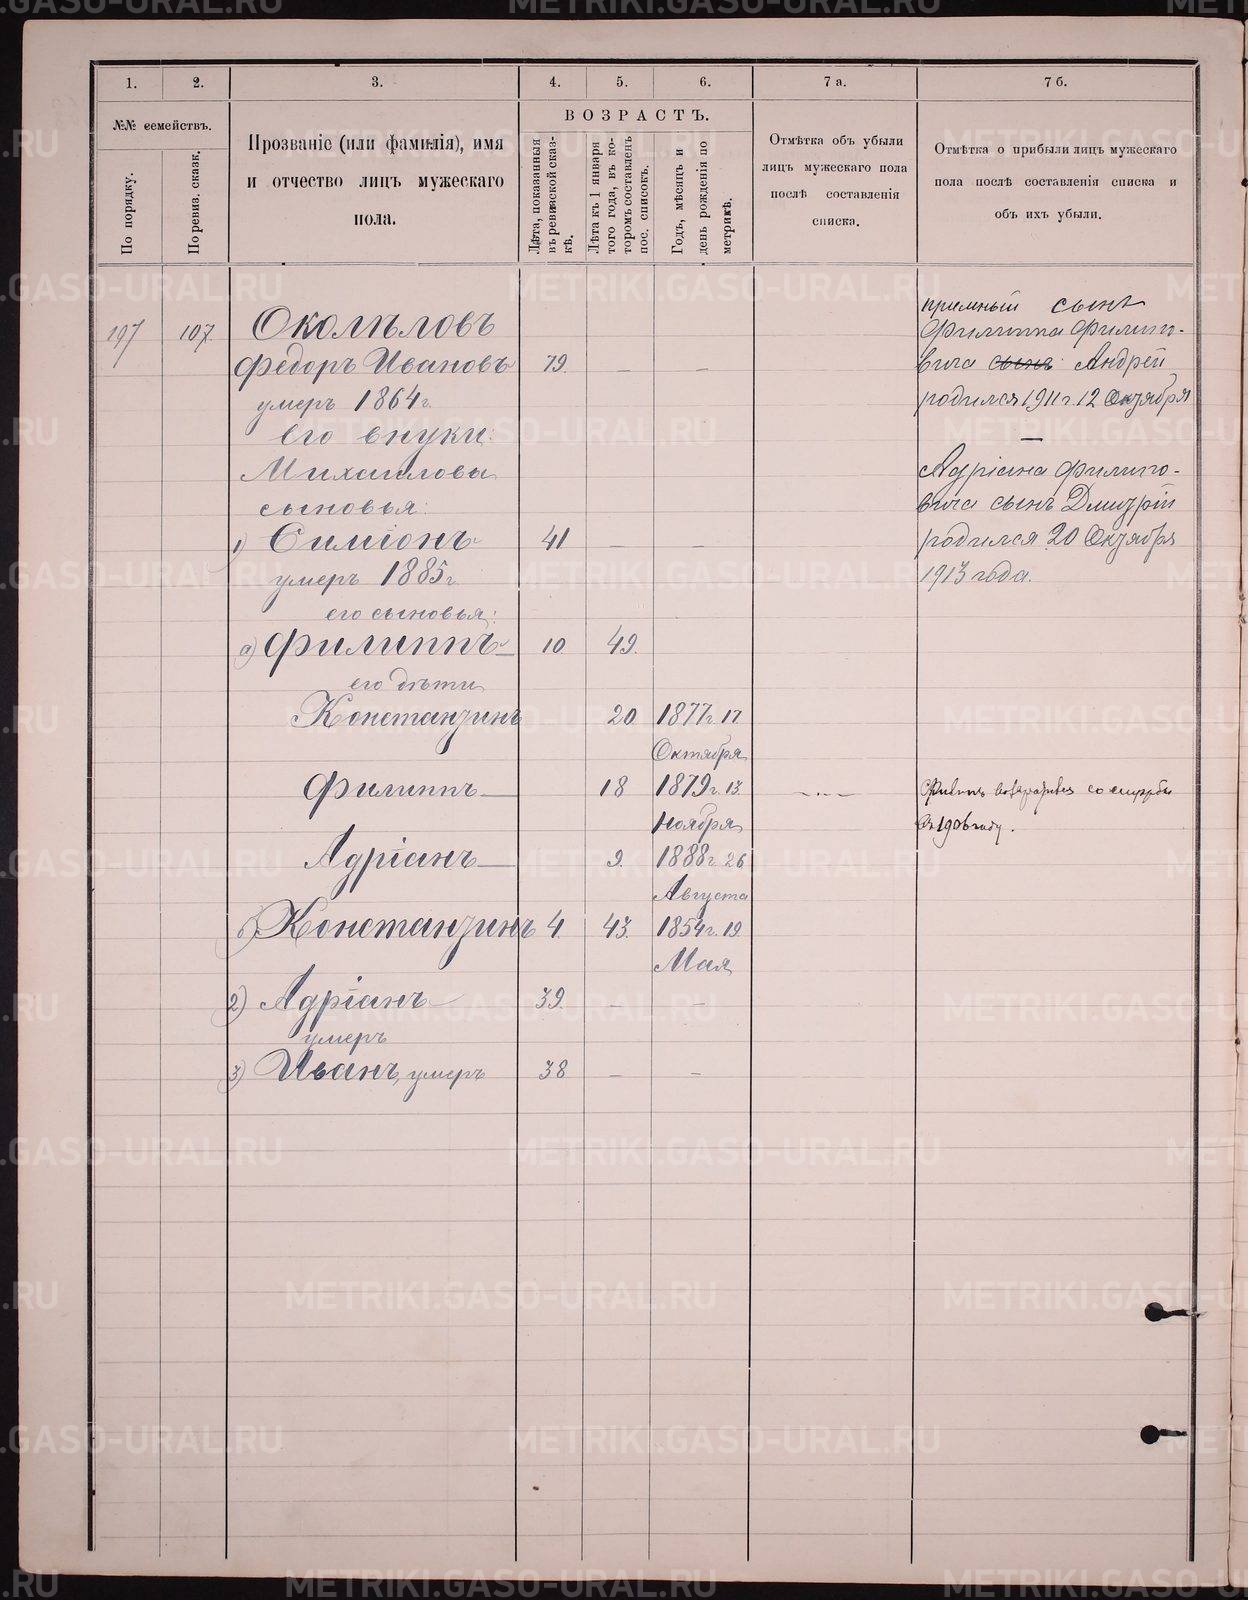 1. 2. 3. 4. 5. 6. 7 а. 7 б.
№№ семействъ.
По порядку.
По ревиз. сказк.
Прозваніе (или фамилія), имя
и отчество лицъ мужескаго
пола.
ВОЗРАСТЪ.
Лѣта, показанныя
въ ревизской сказ-
кѣ.
Лѣта къ 1 января
того года, въ ко-
торомъ составленъ
пос. списокъ.
Годъ, мѣсяцъ и
день рожденія по
метрикѣ.
Отмѣтка объ убыли
лицъ мужескаго пола
послѣ составленія
списка.
Отмѣтка о прибыли лицъ мужескаго
пола послѣ составленія списка и
объ ихъ убыли.
197 107. Околѣловъ
Федоръ Ивановъ 79. — —
умеръ 1864 г.
его внуки:
Михаиловы
сыновья:
1) Симіонъ 41 — —
умеръ 1885 г.
его сыновья:
а) Филиппъ 10. 49.
его дѣти
Константинъ 20. 1877 г. 17
Октября
Филиппъ 18 1879 г. 13.
Ноября
Адріанъ 9. 1888 г. 26
Августа
б) Константинъ 4. 43. 1854 г. 19.
Мая
2) Адріанъ 39. — —
умеръ
3) Иванъ, умеръ 38 — —
приемный сынъ
Филиппа Филипп-
вича сынъ Андрей
родился 1911 г. 12 Октября
—
Адріана Филиппо-
вича сынъ Дмитрій
родился 20 Октября
1913 года.
Филипъ возвратився со службы
въ 1906 году.
METRIKI.GASO-URAL.RU